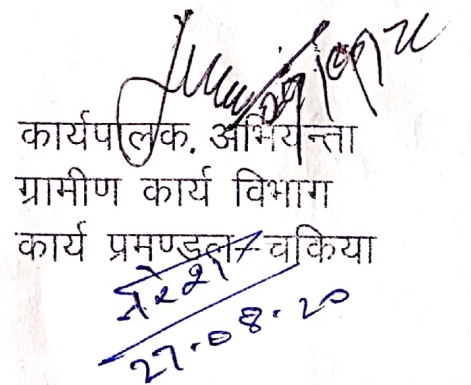 कार्यपालक. अभियन्ता
ग्रामीण कार्य विभाग
कार्य प्रमण्डल-चकिया
27.08.20